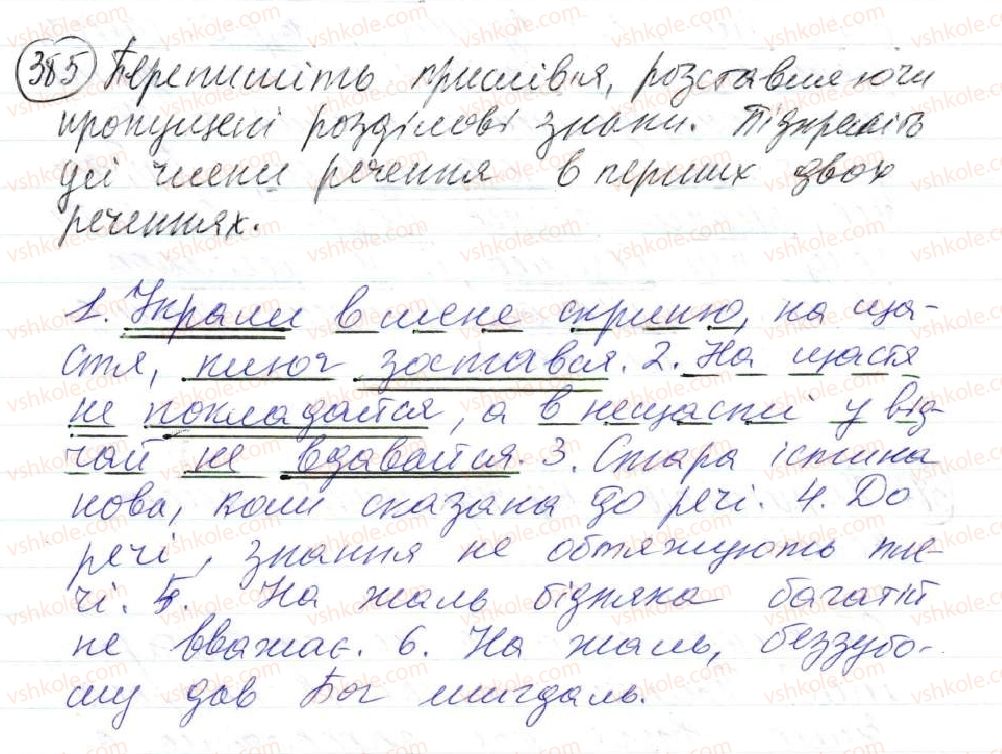 385 Перепишіть прислівя, розставляючи
пропущені розділові знаки. Підкресліть
усі члени речення в перших двох
реченнях.
1. Украли в мене скриню, на ща-
стя, ключ зостався. 2. На щастя
не покладайся, а в нещасті у від-
чай не вдавайся. 3. Стара істина
нова, коли сказана до речі. 4. До
речі, знання не обтяжують пле-
чі. 5. На жаль бідняка багатій
не вважає. 6. На жаль, беззубо-
му дав Бог мигдаль.
vshkole.com